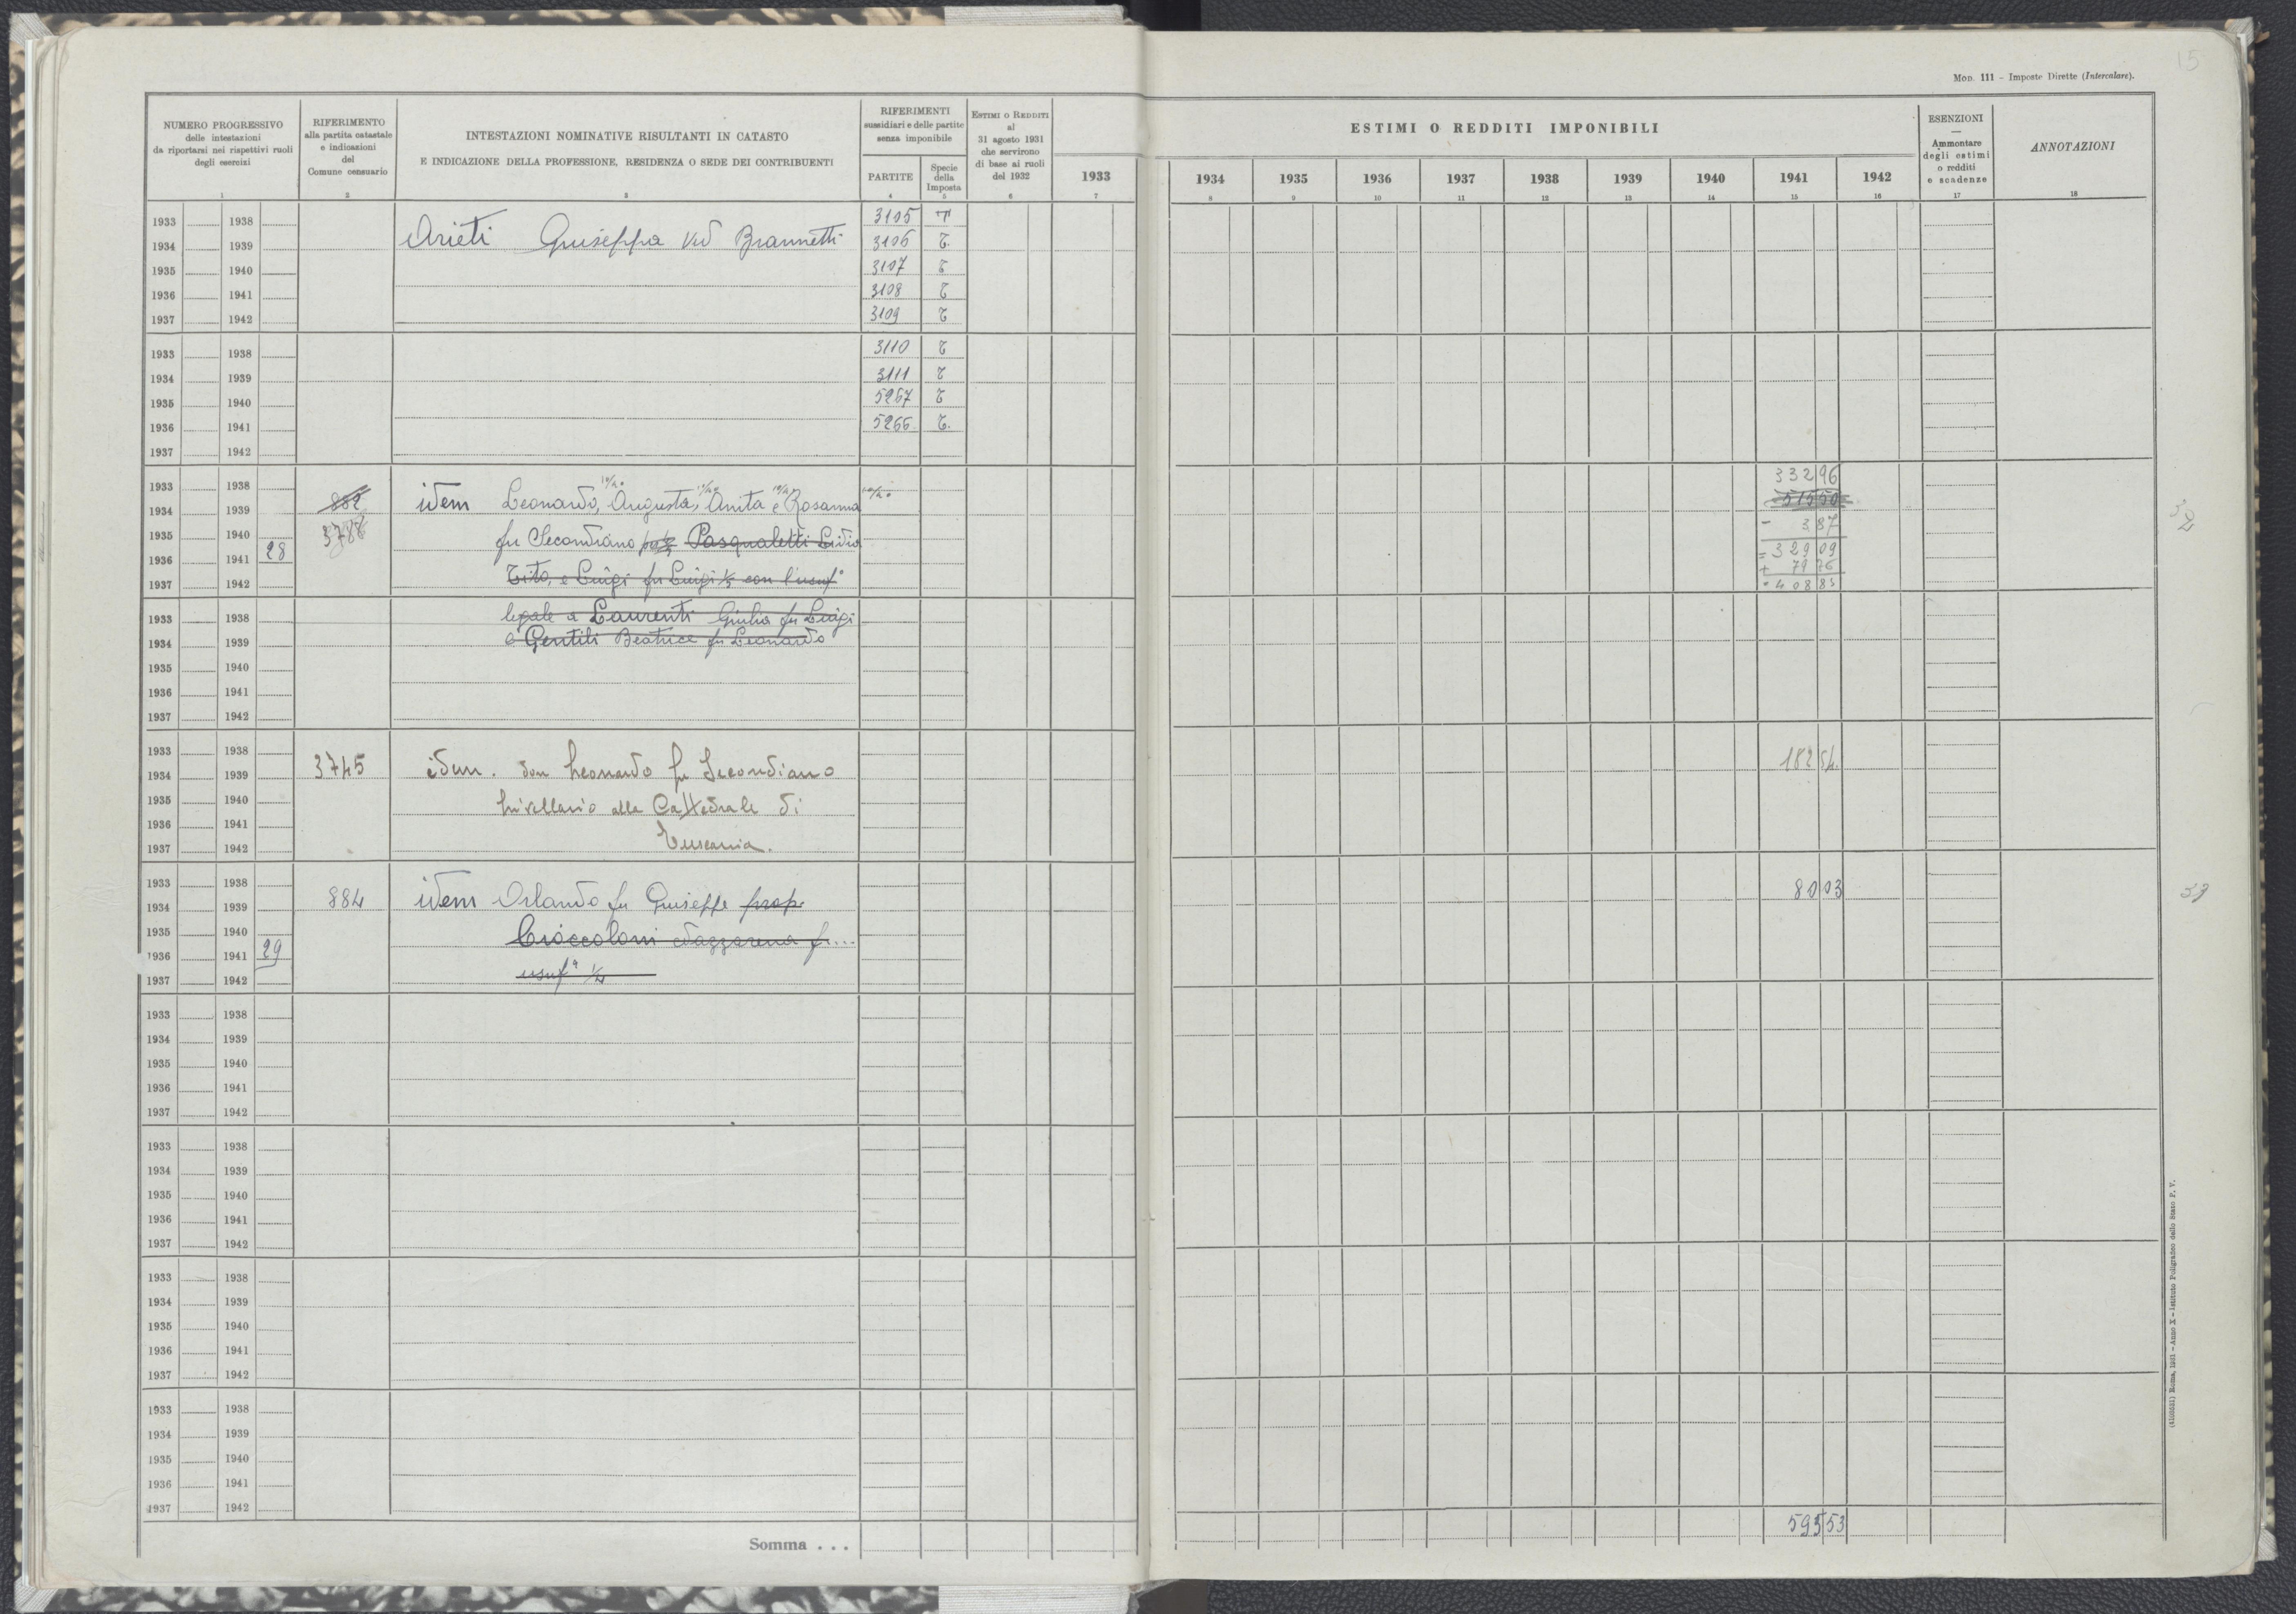 15
Mod. 111 – Imposte Dirette (Intercalare).
NUMERO PROGRESSIVO
delle intestazioni
da riportarsi nei rispettivi ruoli
degli esercizi
1
RIFERIMENTO
alla partita catastale
e indicazioni
del
Comune censuario
2
INTESTAZIONI NOMINATIVE RISULTANTI IN CATASTO
E INDICAZIONE DELLA PROFESSIONE, RESIDENZA O SEDE DEI CONTRIBUENTI
3
RIFERIMENTI
sussidiari e delle partite
senza imponibile
PARTITE
4
Specie
della
Imposta
5
Estimi o Redditi
al
31 agosto 1931
che servirono
di base ai ruoli
del 1932
6
1933
7
ESTIMI O REDDITI IMPONIBILI
1934 1935 1936 1937 1938 1939 1940 1941 1942
8 9 10 11 12 13 14 15 16
ESENZIONI
—
Ammontare
degli estimi
o redditi
e scadenze
17
ANNOTAZIONI
18
1933 1938 3105 T
1934 1939 Arieti Giuseppa Ved Brannetti 3106 T.
1935 1940 3107 T
1936 1941 3108 T
1937 1942 3109 T
1933 1938 3110 T
1934 1939 3111 T
1935 1940 5267 T
1936 1941 5266 T.
1937 1942
1933 1938 332 96
1934 1939 882 idem Leonardo, Augusta, Anita e Rosanna 515 50
1935 1940 3788 fu Secondiano Pasqualetti Lidio - 3 87
1936 1941 28 = 329 09
Tito, e Luigi fu Luigi ½ con l'usuf° + 79 76
1937 1942 408 85
1933 1938 legale a Laurenti Giulia fu Luigi
1934 1939 e Gentili Beatrice fu Leonardo
1935 1940
1936 1941
1937 1942
1933 1938
1934 1939 3745 idem. don Leonardo fu Secondiano 182 54.
1935 1940 livellario alla Cattedrale di
1936 1941
1937 1942 Tuscania.
1933 1938 80 03
1934 1939 884 idem Orlando fu Giuseppe prop.
1935 1940 Cioccoloni Nazzarena fu...
1936 1941 29
1937 1942 usufª
1933 1938
1934 1939
1935 1940
1936 1941
1937 1942
1933 1938
1934 1939
1935 1940
1936 1941
1937 1942
1933 1938
1934 1939
1935 1940
1936 1941
1937 1942
1933 1938
1934 1939
1935 1940
1936 1941
1937 1942
Somma . . . 595 53
(4103031) Roma, 1931 – Anno X – Istituto Poligrafico dello Stato P. V.